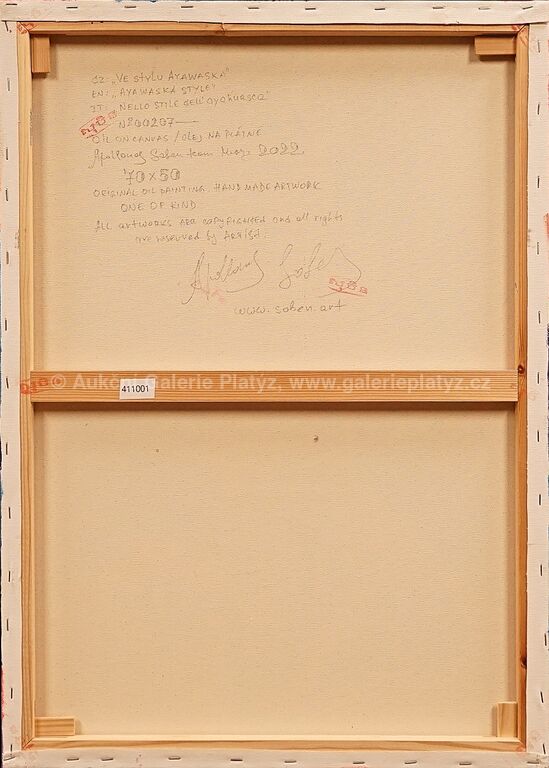 CZ: „VE STYLU AYAWASKA"
EN: „AYAWASKA STYLE"
IT: „NELLO STILE DELL'
Nº 00207
OIL ON CANVAS / OLEJ NA PLÁTNĚ
Apollonas Soben team 2022
70x50
ORIGINAL OIL PAINTING, HAND MADE ARTWORK
ONE OF KIND
ALL artworks are copyrighted and all rights
are reserved by Artist
Apollonas Soben
www.soben.art
© Aukční Galerie Platýz, www.galerieplatyz.cz
411001